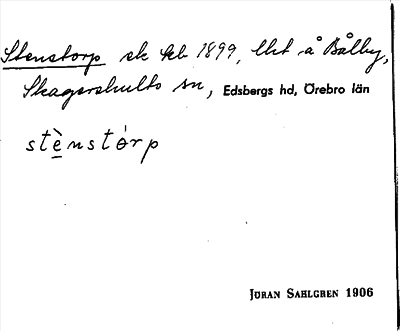 Stenstorp ek Geb 1899, lht å Bålby,
Skagershults sn, Edsbergs hd, Örebro län
stènstórp
JÖRAN SAHLGREN 1906